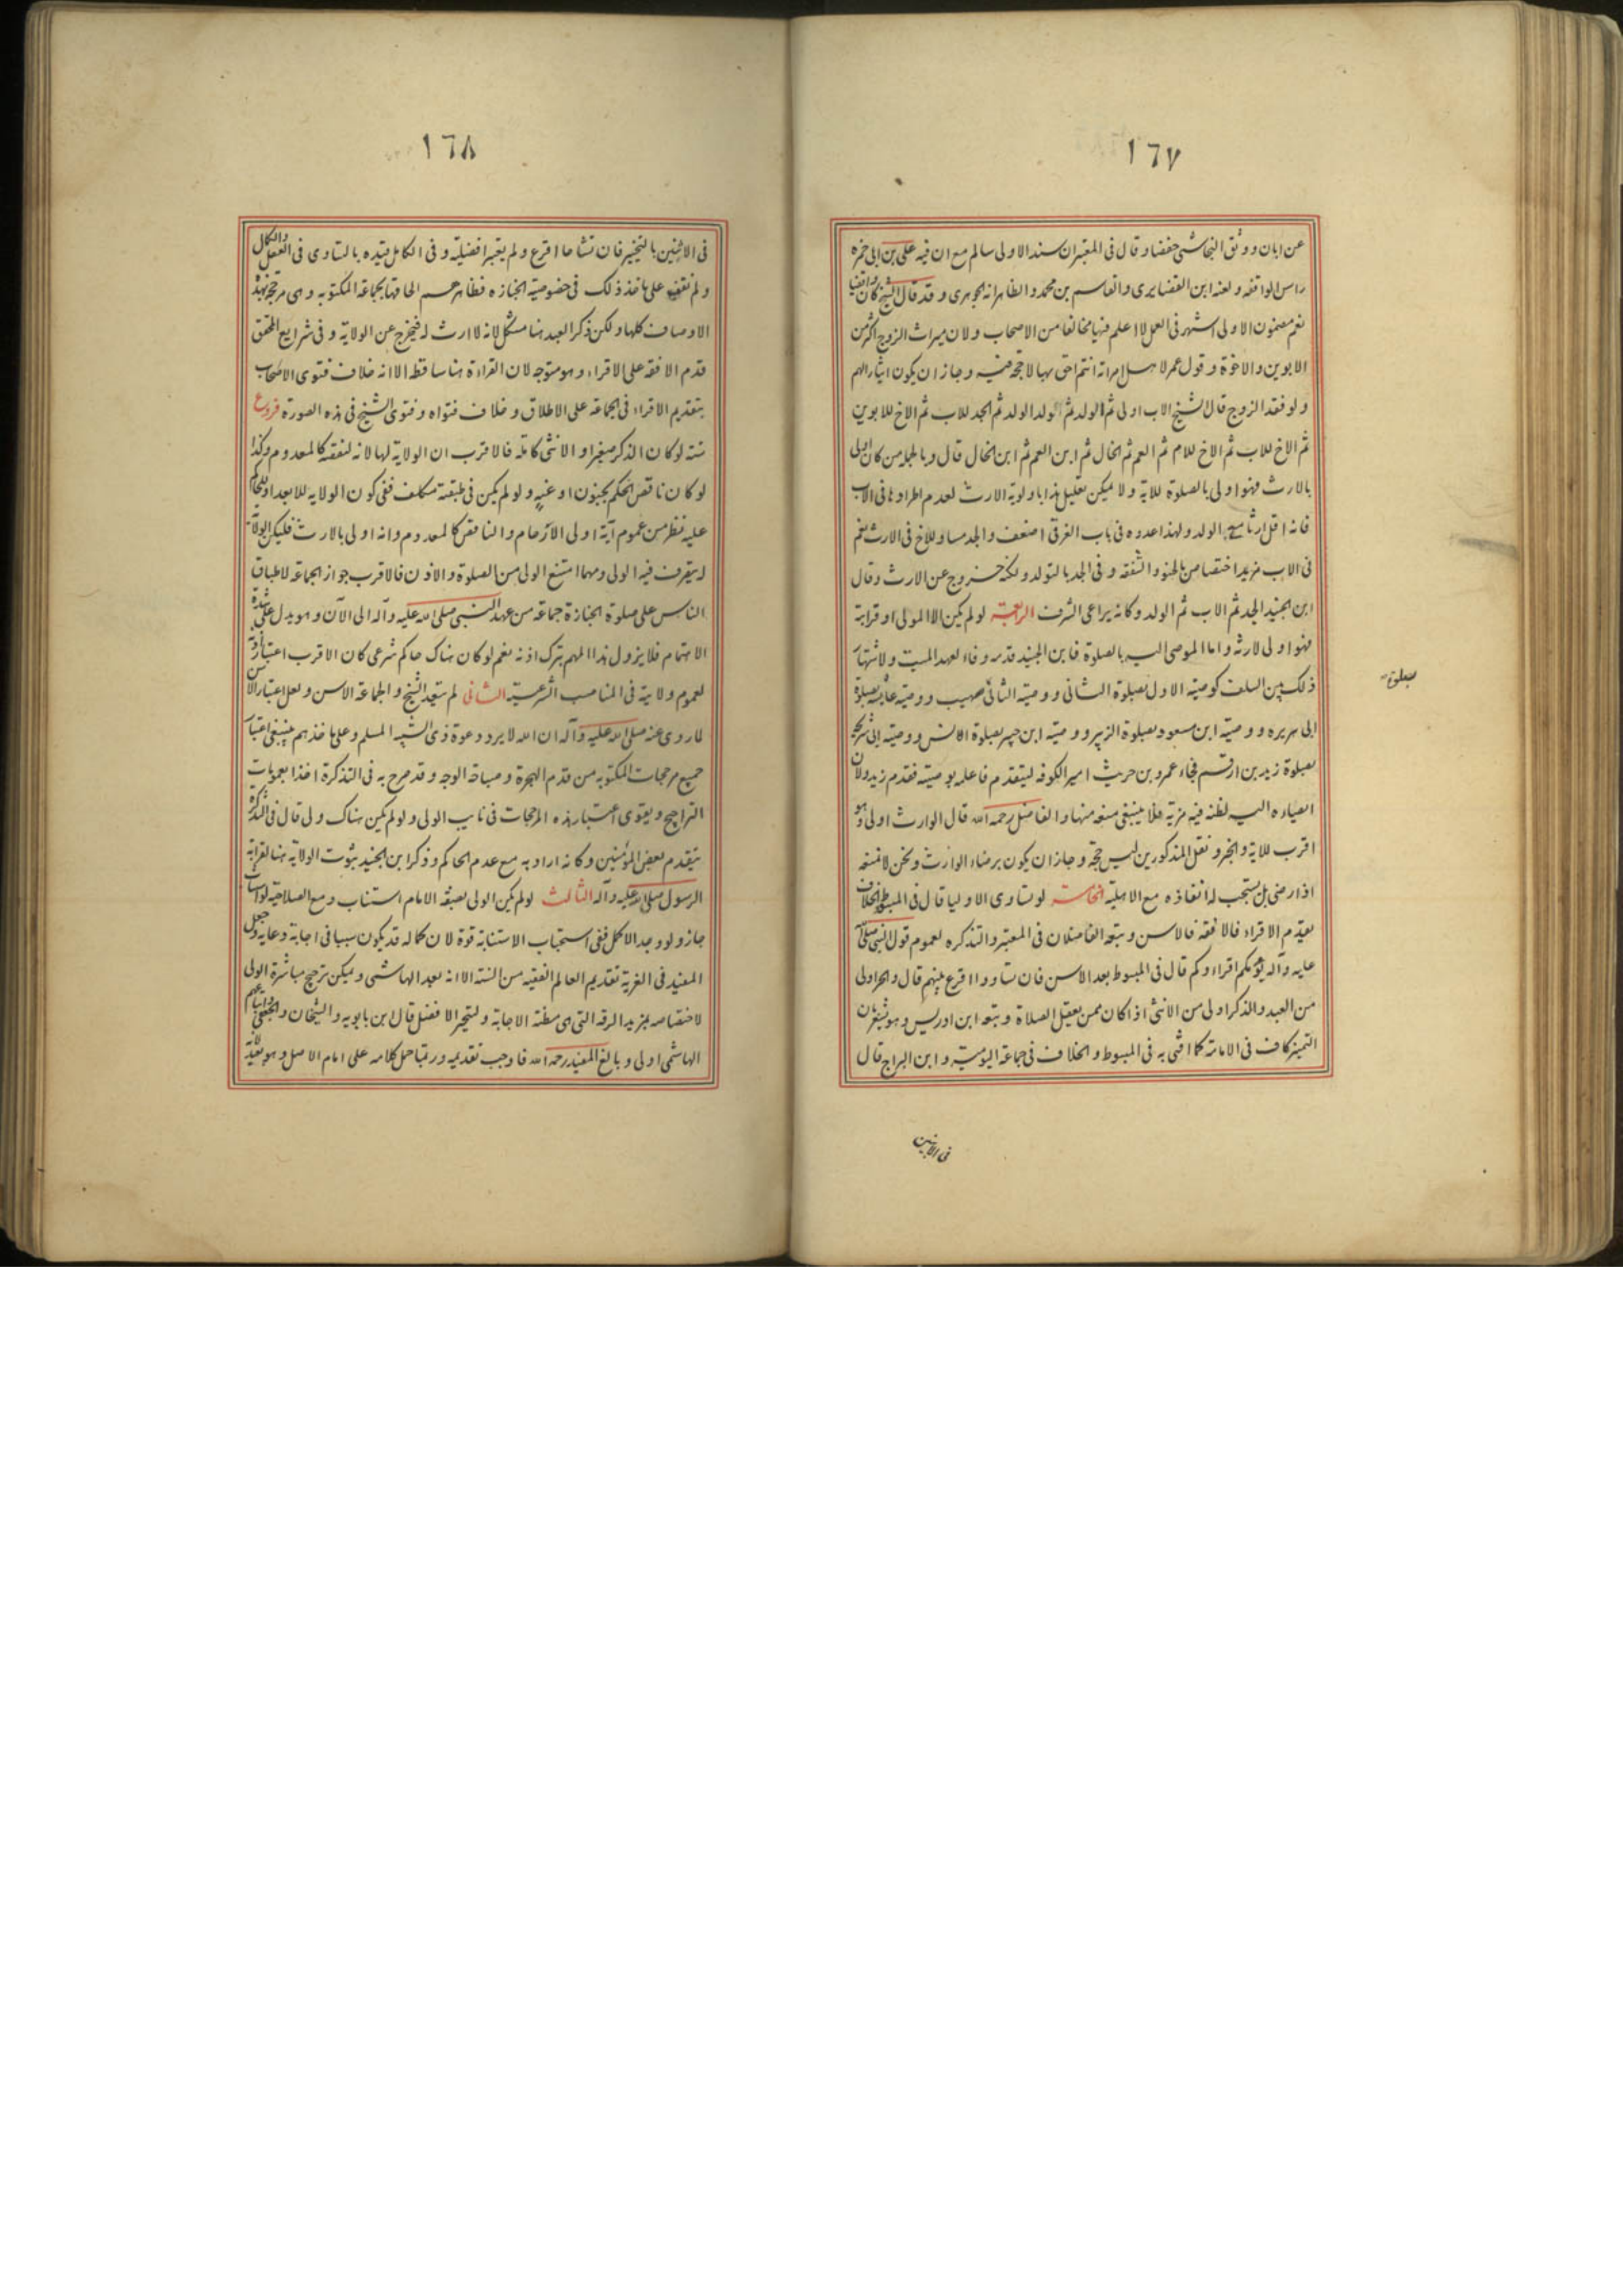 ١٦٧
عن ابان ووثق النجاشي حفصا وقال فى المعتبر ان سند الاولى سالم مع ان فيه على بن ابى حمزه
راس الواقفه ولعنه ابن الغضايرى والقاسم بن محمد والظاهر انه الجوهرى وقد قال الشيخ كان واقفيا
نعم مضمون الاولى اشهر فى العمل لا اعلم فيها مخالفا من الاصحاب ولان ميراث الزوج اكثر من
الابوين والاخوة وقول عمر لاهل امراته انتم احق بها لا حجة فيه وجاز ان يكون ايثارا لهم
ولو فقد الزوج قال الشيخ الاب اولى ثم الولد ثم ولد الولد ثم الجد للاب ثم الاخ للابوين
ثم الاخ للاب ثم الاخ للام ثم العم ثم الخال ثم ابن العم ثم ابن الخال قال وبالجملة من كان اولى
بالارث فهو اولى بالصلوة للاية ولا يمكن تعليل هذا باولوية الارث لعدم اطرادها فى الاب
فانه اقل ارثا مع الولد ولهذا عدوه فى باب الغرقى اضعف والجد مساو للاخ فى الارث نعم
فى الاب مزيد اختصاص بالحنو والشفقه وفى الجد بالتولد ولكنه خروج عن الارث وقال
ابن الجنيد الجد ثم الاب ثم الولد وكانه يراعى الشرف الرابعة لو لم يكن الا المولى او قرابة
فهو اولى لارثه واما الموصى اليه بالصلوة فابن الجنيد قدمه وفاء لعهد الميت ولاشتهار
ذلك بين السلف كوصية الاول بصلوة الثانى ووصية الثانى صهيب ووصية عايشه بصلوة
ابى هريره ووصية ابن مسعود بصلوة الزبير ووصية ابن جبير بصلوة انس ووصية ابى شريحه
بصلوة زيد بن ارقم فجاء عمرو بن حريث امير الكوفه ليتقدم فاعلمه بوصيته فقدم زيد ولان
ايصاءه اليه لظنه فيه مزية فلا ينبغى منعه منها والفاضل رحمه الله قال الوارث اولى وهو
اقرب للاية والخبر ونقل المذكورين ليس حجة وجاز ان يكون برضاء الوارث ونحن لا نمنعه
اذا رضى بل يستحب له انفاذه مع الاهلية الخامسة لو تساوى الاولياء قال فى المبسوط والخلاف
يقدم الاقراء فالافقه فالاسن وتبعه الفاضلان فى المعتبر والتذكره لعموم قول النبى صلى الله
عليه وآله يؤمكم اقراءوكم قال فى المبسوط بعد الاسن فان تساووا اقرع بينهم قال والحر اولى
من العبد والذكر اولى من الانثى اذا كان ممن يعقل الصلاة وتبعه ابن ادريس وهو يشعر بان
التميز كاف فى الامامة كما افتى به فى المبسوط والخلاف فى جماعة اليومية وابن البراج قال
فى الاثنين
بصلوة
١٦٨
فى الاثنين بالتخيير فان تشاحا اقرع ولم يعتبر افضليه وفى الكامل قيده بالتساوى فى العقل والكمال
ولم نقف على ماخذ ذلك فى خصوصية الجنازه فظاهرهم الحاقها بجماعة المكتوبه وهى مرجحة بهذه
الاوصاف كلها ولكن ذكر العبد هنا مشكل لانه لا ارث له فيخرج عن الولاية وفى شرايع المحقق
قدم الافقه على الاقراء وهو متوجه لان القراءة هنا ساقطه الا انه خلاف فتوى الاصحاب
بتقديم الاقراء فى الجماعة على الاطلاق وخلاف فتواه وفتوى الشيخ فى هذه الصورة فروع
ستة لو كان الذكر صغيرا والانثى كاملة فالاقرب ان الولاية لها لانه لنقصه كالمعدوم وكذا
لو كان ناقص الحكم بجنون او غيره ولو لم يكن فى طبقته مكلف ففى كون الولايه للابعد او للحاكم
عليه نظر من عموم آية اولى الارحام والناقص كالمعدوم وانه اولى بالارث فليكن الولاية
له يتصرف فيه الولى ومهما امتنع الولى من الصلوة والاذن فالاقرب جواز الجماعة لاطباق
الناس على صلوة الجنازة جماعة من عهد النبى صلى الله عليه وآله الى الآن وهو يدل على شدة
الاهتمام فلا يزول هذا المهم بترك اذنه نعم لو كان هناك حاكم شرعى كان الاقرب اعتبار اذنه
لعموم ولايته فى المناصب الشرعية الثانى لم يتعد الشيخ والجماعة الاسن ولعل اعتبار الاسن
لما روى عنه صلى الله عليه وآله ان الله لا يرد دعوة ذى الشيبه المسلم وعلى ماخذهم ينبغى اعتبار
جميع مرجحات المكتوبه من قدم الهجرة وصباحة الوجه وقد صرح به فى التذكرة اخذا بعمومات
التراجيح ويقوى اعتبار هذه المرجحات فى نايب الولى ولو لم يكن هناك ولى قال فى التذكرة
يتقدم بعض المؤمنين وكانه اراد به مع عدم الحاكم وذكر ابن الجنيد ثبوت الولاية هنا لقرابة
الرسول صلى الله عليه وآله الثالث لو لم يكن الولى بصفة الامام استناب ومع الصلاحية لو استناب
جاز ولو وجد الاكمل ففى استحباب الاستنابة قوة لان كماله قد يكون سببا فى اجابة دعايه وجعل
المفيد فى الغرية تقديم العالم الفقيه من السنة الا انه بعد الهاشمى ويمكن ترجيح مباشرة الولى
لاختصاصه بمزيد الرقه التى هى مظنة الاجابة وليتخير الافضل قال ابن بابويه والشيخان والجعفى واتباعهم
الهاشمى اولى وبالغ المفيد رحمه الله فاوجب تقديمه وربما حمل كلامه على امام الاصل وهو بعيد لانه